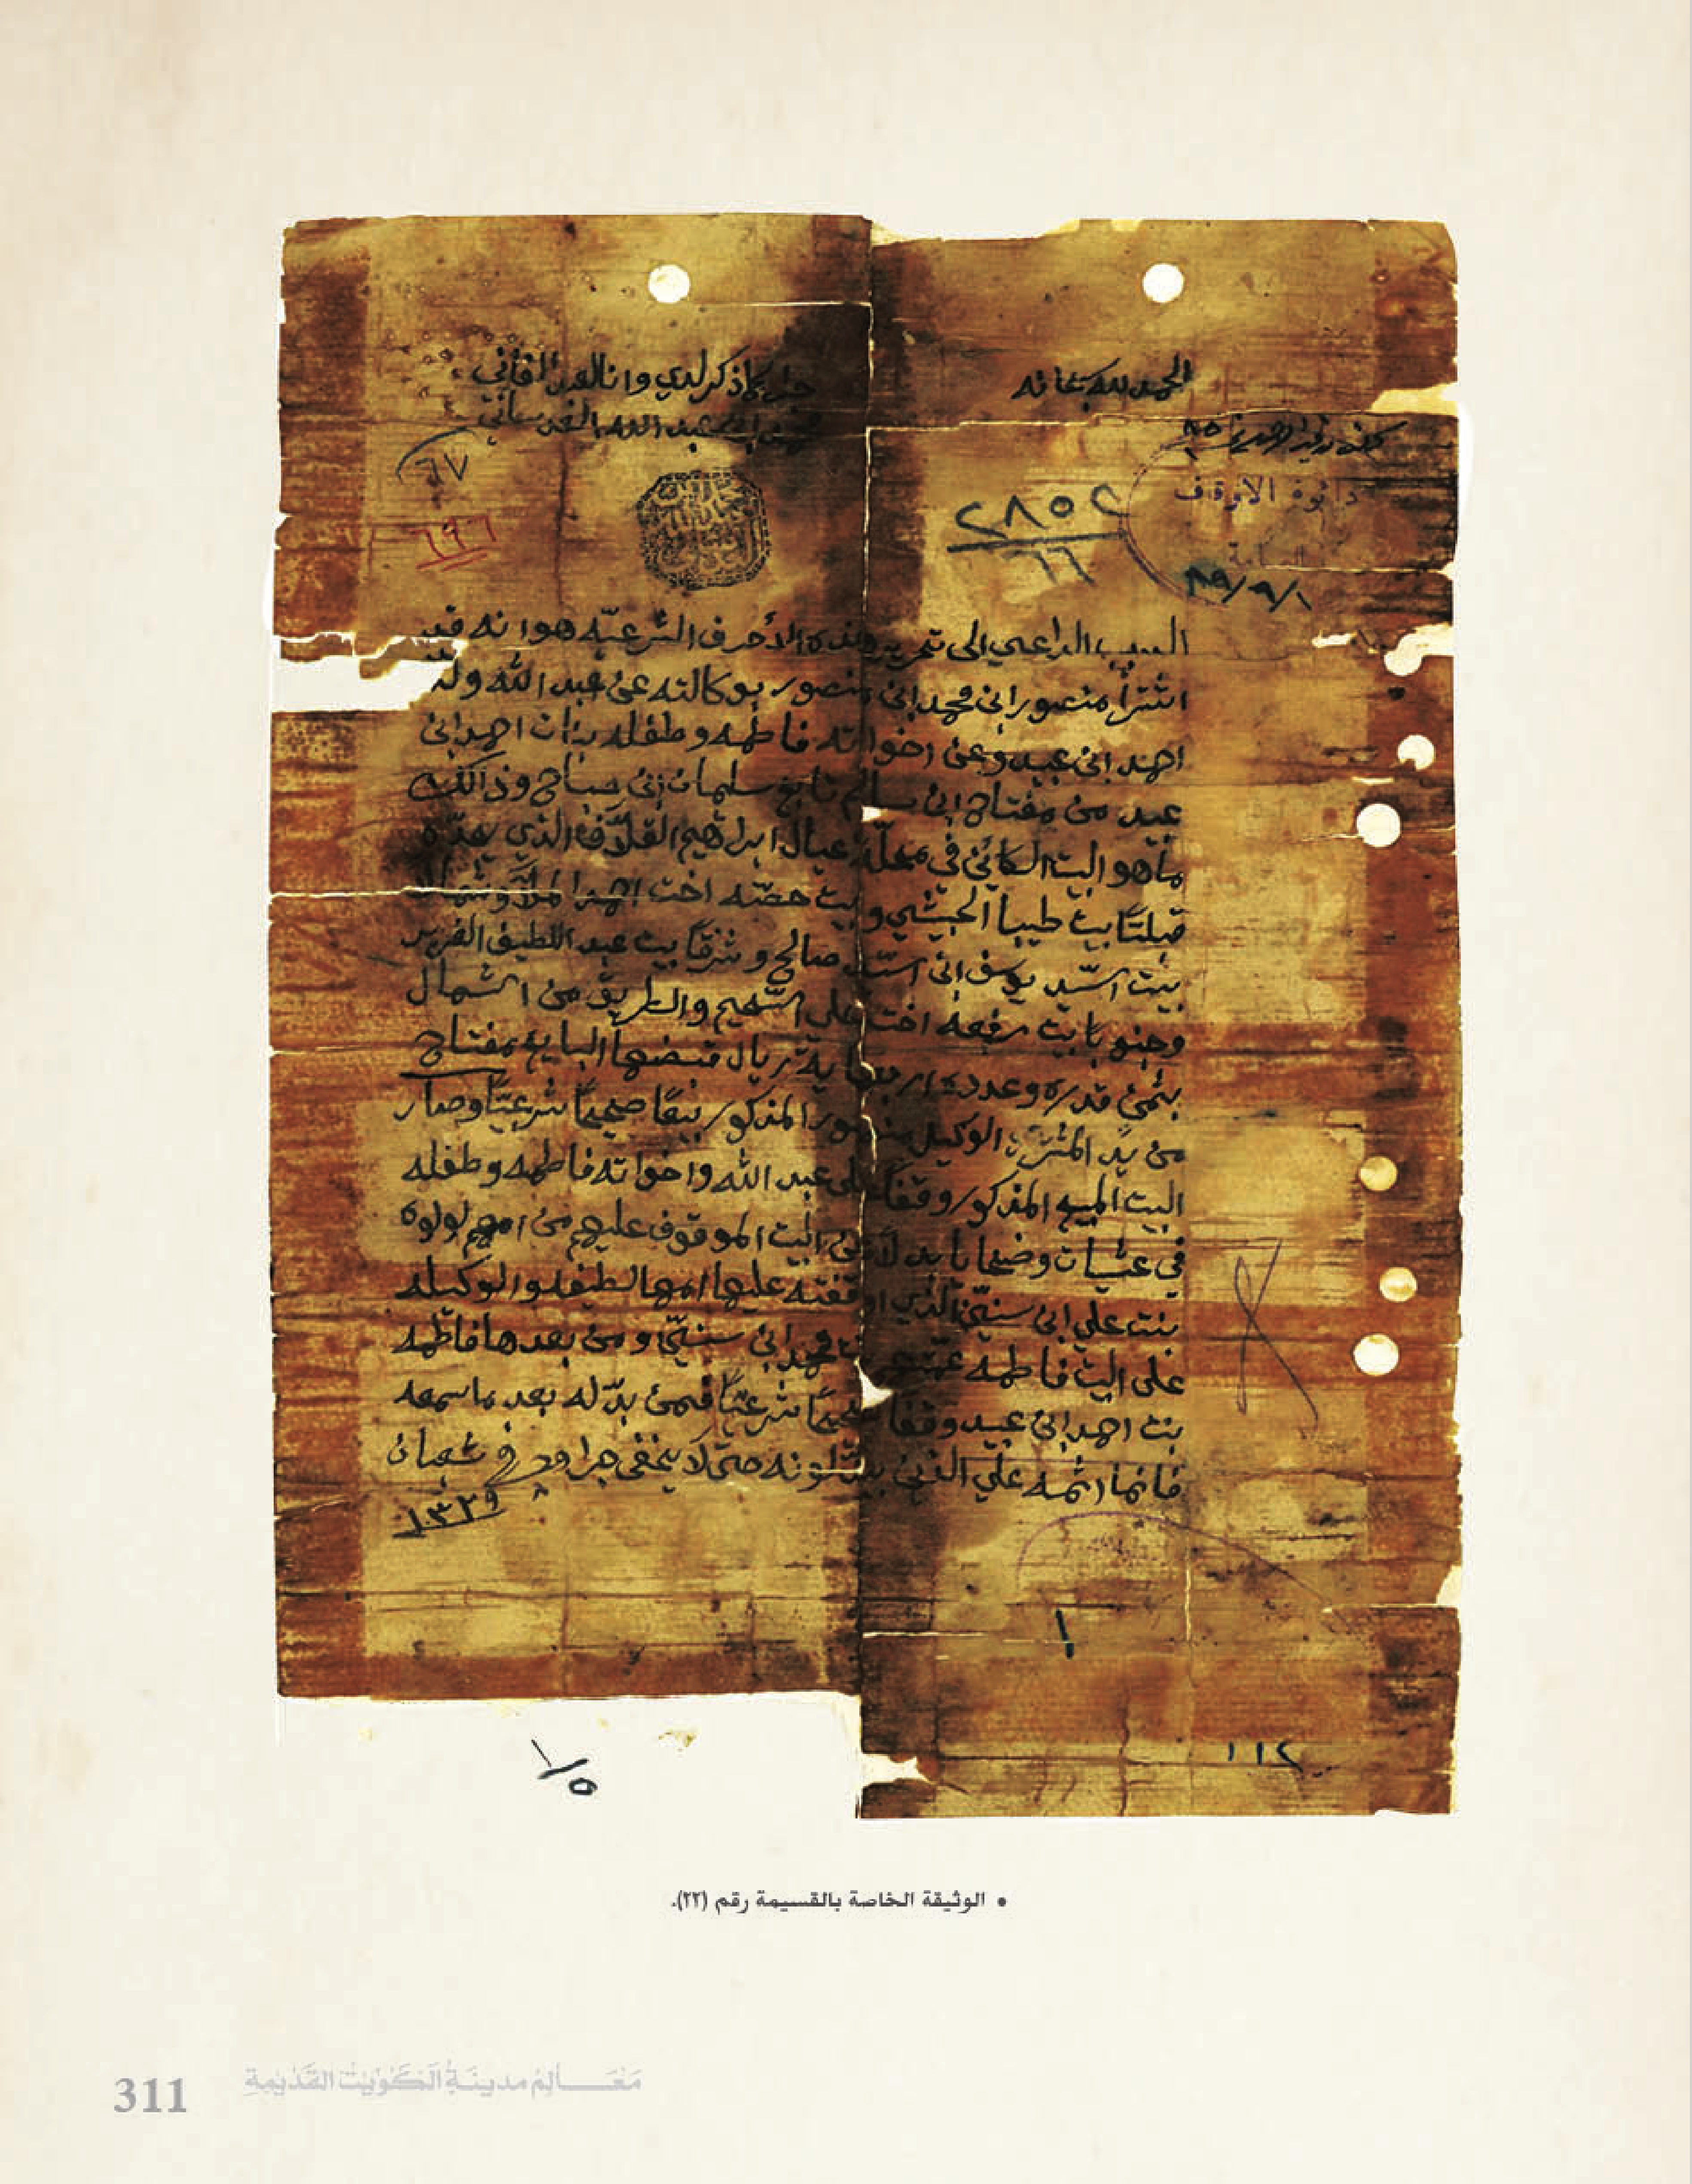 الحمد لله سبحانه
جرا كما ذكر لدي وانا العبد الفاني
محمد ابن عبدالله العدساني
٦٧
٦٩٦
٢٨٥٢
٦٦
دائرة الاوقاف
٨٩/٩/١
السبب الداعي الى تحرير هذه الأحرف الشرعيّه هو انه قد
اشترا منصور ابن محمد ابن منصور بوكالته عن عبد الله ولد
احمد ابن عبيد وعن اخواته فاطمه وطفله بنات احمد ابن
عبيد من مفتاح ابن سالم تابع سليمان ابن جناح وذالك
ماهو البيت الكائن في محلّة عيال ابراهيم القلاّف الذي يحدّه
قبلتاً بيت طيبا الحبيشي وبيت حصّه اخت احمد الملا وشمالاً
بيت السّيد يوسف ابن السّيد صالح وشرقاً بيت عبد اللطيف الفريّر
وجنوباً بيت رفعه اخت علي السّحيم والطريق من الشمال
بثمن قدره وعدده اربعماية ريال قبضها البايع مفتاح
من يد المشتري الوكيل منصور المذكور بيعاً صحيحاً شرعيّاً وصار
البيت المبيع المذكور وقفاً على عبد الله واخواته فاطمه وطفله
في عشيات وضحايا بدلاً عن البيت الموقوف عليهم من امهم لولوه
بنت علي ابن سنيّن الذي اوقفته عليها امها لطيفه والوكيله
على البيت فاطمه عمّتهم بنت محمد ابن سنيّن ومن بعدها فاطمه
بنت احمد ابن عبيد وقفاً صحيحاً شرعيّاً فمن بدّله بعد ما سمعه
فانما اثمه على الذين يبدّلونه حتى لا يخفى جرا وحرر في شعبان
١٣٢٩
١
١١٢
١/٥
• الوثيقة الخاصة بالقسيمة رقم (٢٢).
مَعَـــالِمُ مدينَةِ الكُوَيْت القَدْيمَةِ
311